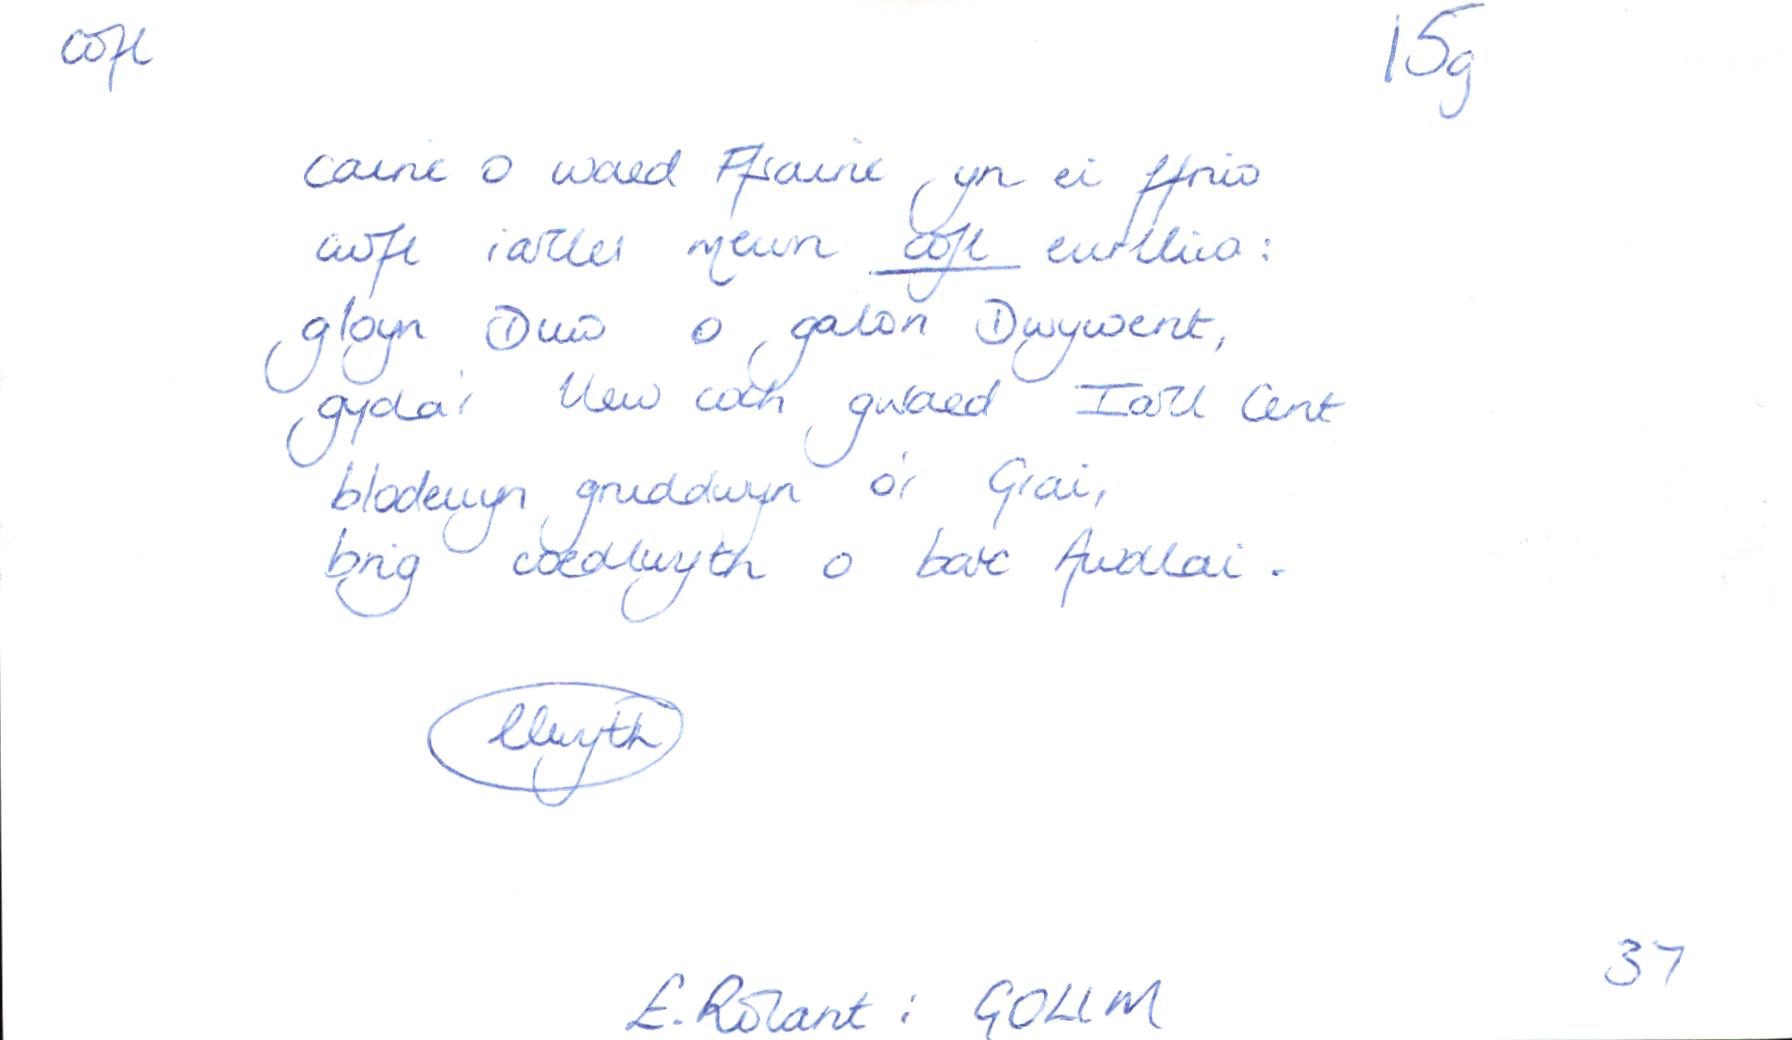 côfl 15g
cainc o waed Ffrainc yn ei ffrio
côfl iarlles mewn côfl eurlliw:
gloyn Duw o galon Dwywent,
gyda'r llew coch gwaed Iarll Cent
blodeuyn gruddwyn o'r Grai,
brig coedlwyth o barc Awdlai.
llwyth
37
E. Rolant: GOLlM